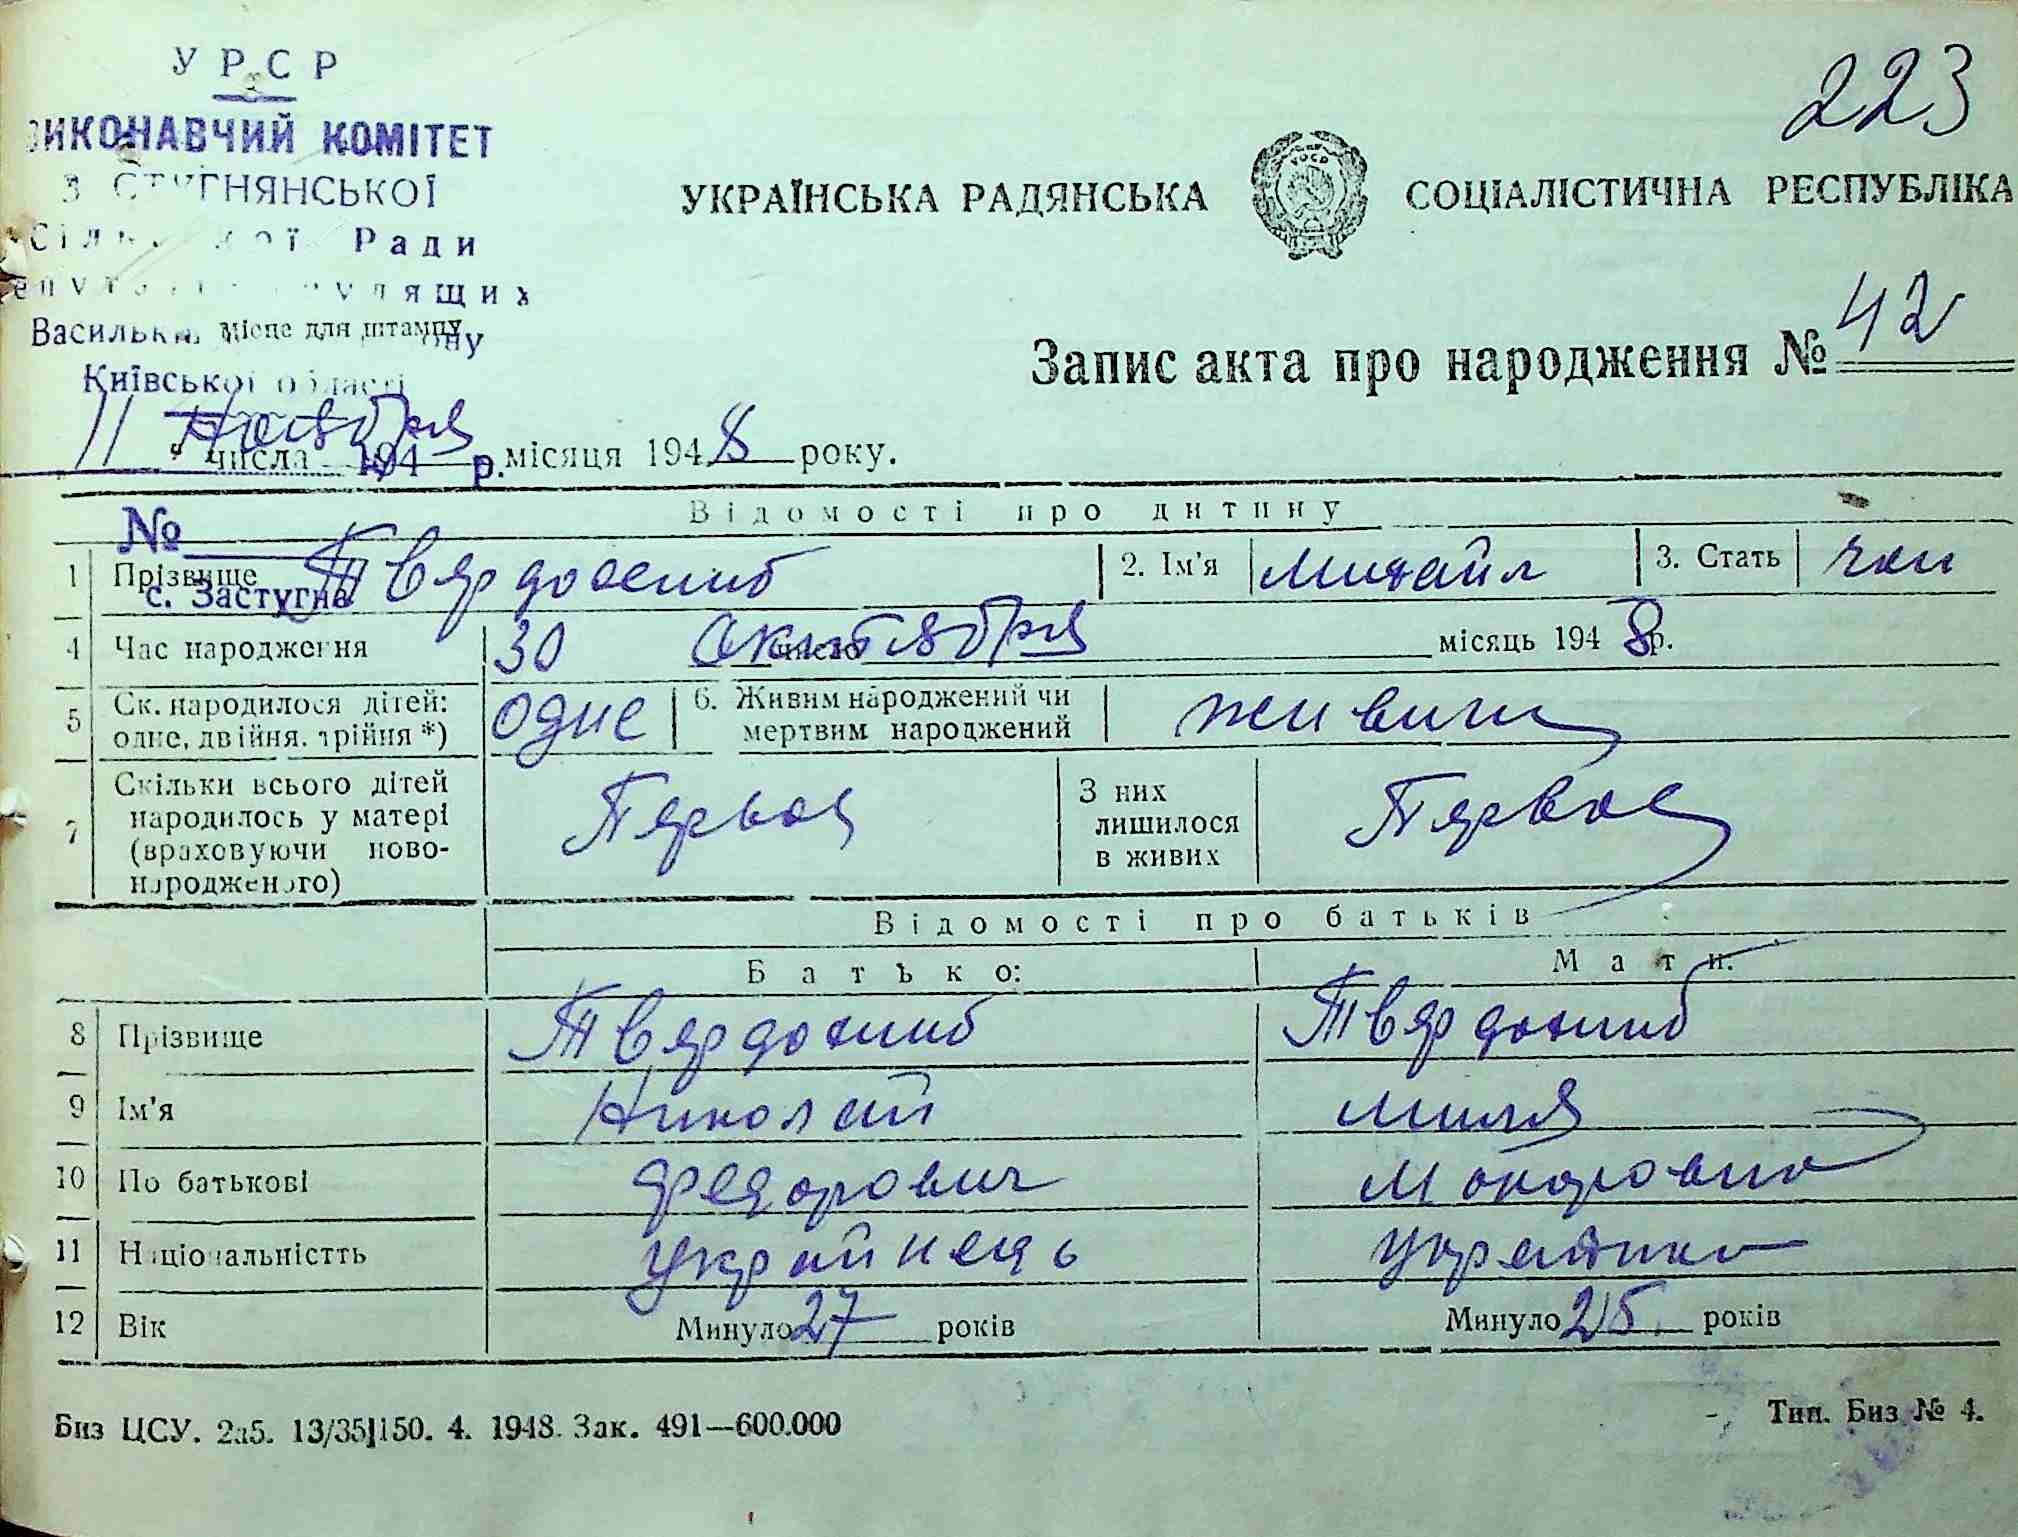 УРСР
223
ВИКОНАВЧИЙ КОМІТЕТ
З СТУГНЯНСЬКОЇ
УКРАЇНСЬКА РАДЯНСЬКА СОЦІАЛІСТИЧНА РЕСПУБЛІКА
Ради
Місце для штампу
Київської області
Запис акта про народження № 42
11 Ноября числа 194 р. місяця 1948 року.
Відомості про дитину
№
1 Прізвище Твярдохлиб 2. Ім'я Михайл 3. Стать чол
с. Застугна
4 Час народження 30 число Октября місяць 1948 р.
5 Ск. народилося дітей: одне, двійня, трійня *) одне 6. Живим народжений чи мертвим народжений живим
7 Скільки всього дітей народилось у матері (враховуючи новонародженого) Пярвоє З них лишилося в живих Пярвоє
Відомості про батьків
Батько: Мати:
8 Прізвище Твярдохлиб Твярдохлиб
9 Ім'я Николай Миля
10 По батькові Федорович Макаровна
11 Національністть украйнець украинка
12 Вік Минуло 27 років Минуло 25 років
Биз ЦСУ. 2а5. 13/35]150. 4. 1948. Зак. 491—600.000 Тип. Биз № 4.